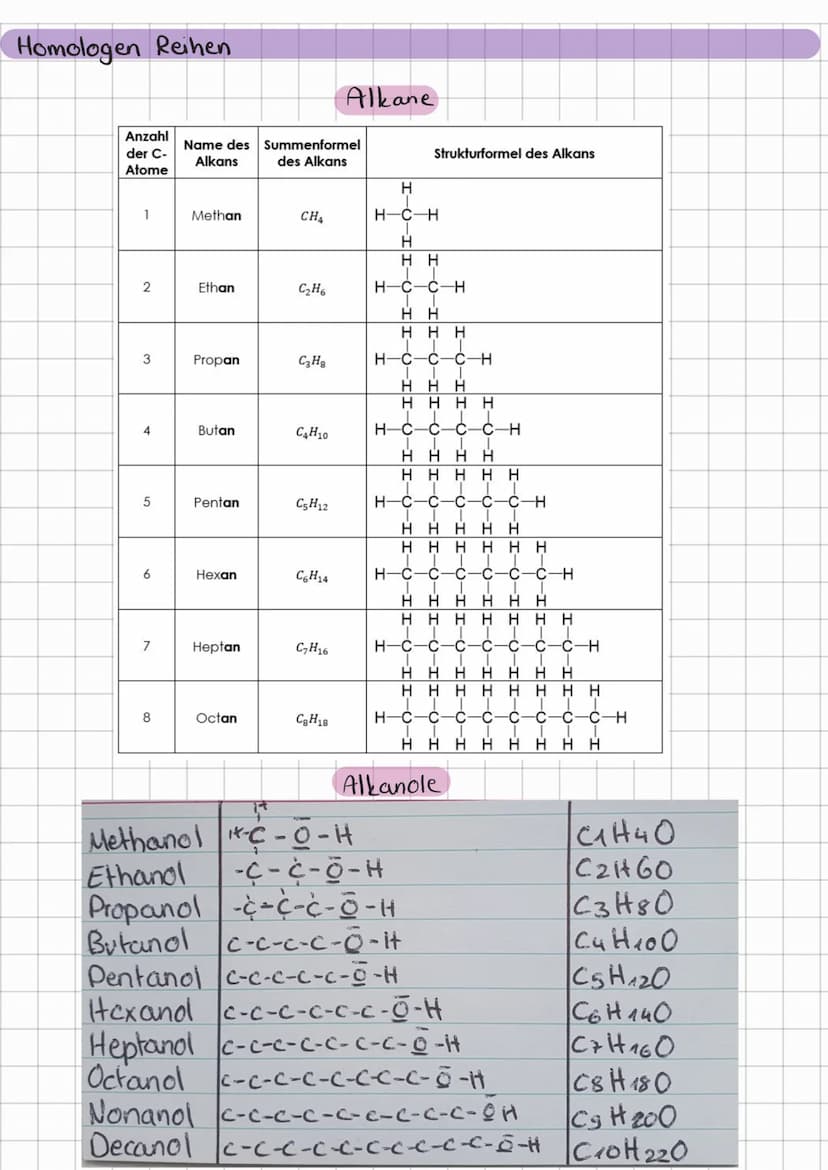 Homologen Reihen
Alkane
Anzahl der C-Atome | Name des Alkans | Summenformel des Alkans | Strukturformel des Alkans
H
1 | Methan | CH₄ | H-C-H
H
H H
2 | Ethan | C₂H₆ | H-C-C-H
H H
H H H
3 | Propan | C₃H₈ | H-C-C-C-H
H H H
H H H H
4 | Butan | C₄H₁₀ | H-C-C-C-C-H
H H H H
H H H H H
5 | Pentan | C₅H₁₂ | H-C-C-C-C-C-H
H H H H H
H H H H H H
6 | Hexan | C₆H₁₄ | H-C-C-C-C-C-C-H
H H H H H H
H H H H H H H
7 | Heptan | C₇H₁₆ | H-C-C-C-C-C-C-C-H
H H H H H H H
H H H H H H H H
8 | Octan | C₈H₁₈ | H-C-C-C-C-C-C-C-C-H
H H H H H H H H
Alkanole
H
Methanol | H-C-O-H | C1H4O
Ethanol | -C-C-O-H | C2H6O
Propanol | -C-C-C-O-H | C3H8O
Butanol | C-C-C-C-O-H | C4H10O
Pentanol | C-C-C-C-C-O-H | C5H12O
Hexanol | C-C-C-C-C-C-O-H | C6H14O
Heptanol | C-C-C-C-C-C-C-O-H | C7H16O
Octanol | C-C-C-C-C-C-C-C-O-H | C8H18O
Nonanol | C-C-C-C-C-C-C-C-C-OH | C9H20O
Decanol | C-C-C-C-C-C-C-C-C-C-O-H | C10H22O